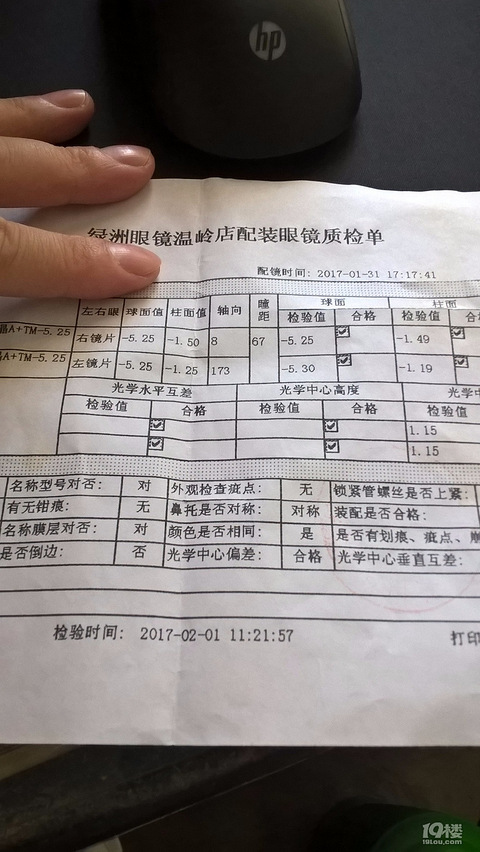 hp
绿洲眼镜温岭店配装眼镜质检单
配镜时间: 2017-01-31 17:17:41
左右眼 球面值 柱面值 轴向 瞳距 球面 柱面
检验值 合格 检验值 合
晶A+TM-5.25 右镜片 -5.25 -1.50 8 67 -5.25 -1.49
晶A+TM-5.25 左镜片 -5.25 -1.25 173 -5.30 -1.19
光学水平互差 光学中心高度 光学中
检验值 合格 检验值 合格 检验值
1.15
1.15
名称型号对否: 对 外观检查疵点: 无 锁紧管螺丝是否上紧:
有无钳痕: 无 鼻托是否对称: 对称 装配是否合格:
名称膜层对否: 对 颜色是否相同: 是 是否有划痕、疵点、
是否倒边: 否 光学中心偏差: 合格 光学中心垂直互差:
检验时间: 2017-02-01 11:21:57 打印
19楼
19lou.com